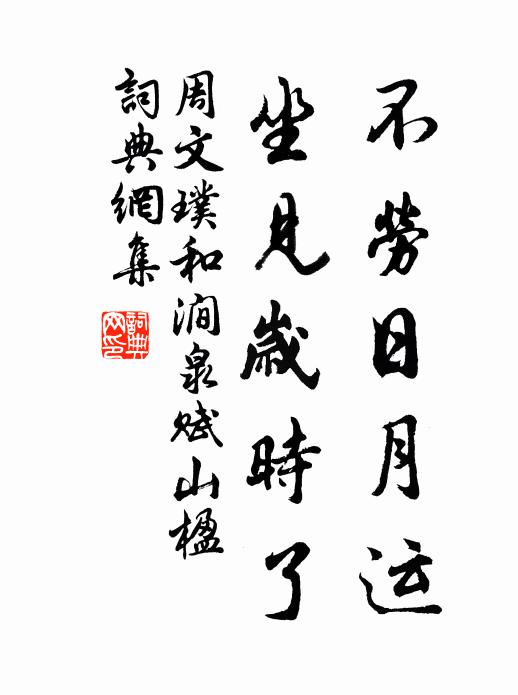 不勞日月运
坐見歲時了
周文璞和澗泉赋山楹
詞典網集
詞典
网印